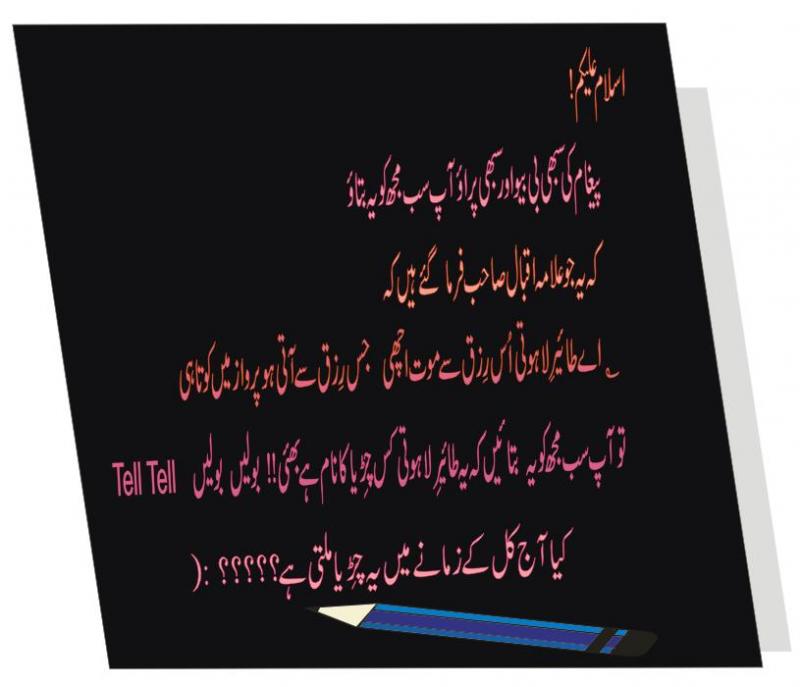 اسلام علیکم!
پیغام کی سبھی بی بیو اور سبھی پراؤ آپ سب مجھ کو یہ بتاؤ
کہ یہ جو علامہ اقبال صاحب فرما گئے ہیں کہ
؎ اے طائیرِ لاہوتی اُس رِزق سے موت اچھی جس رِزق سے آتی ہو پرواز میں کوتاہی
تو آپ سب مجھ کو یہ بتائیں کہ یہ طائیرِ لاہوتی کس چِڑیا کا نام ہے بھئی!! بولیں بولیں Tell Tell
کیا آج کل کے زمانے میں یہ چِڑیا ملتی ہے؟؟؟؟؟ :(